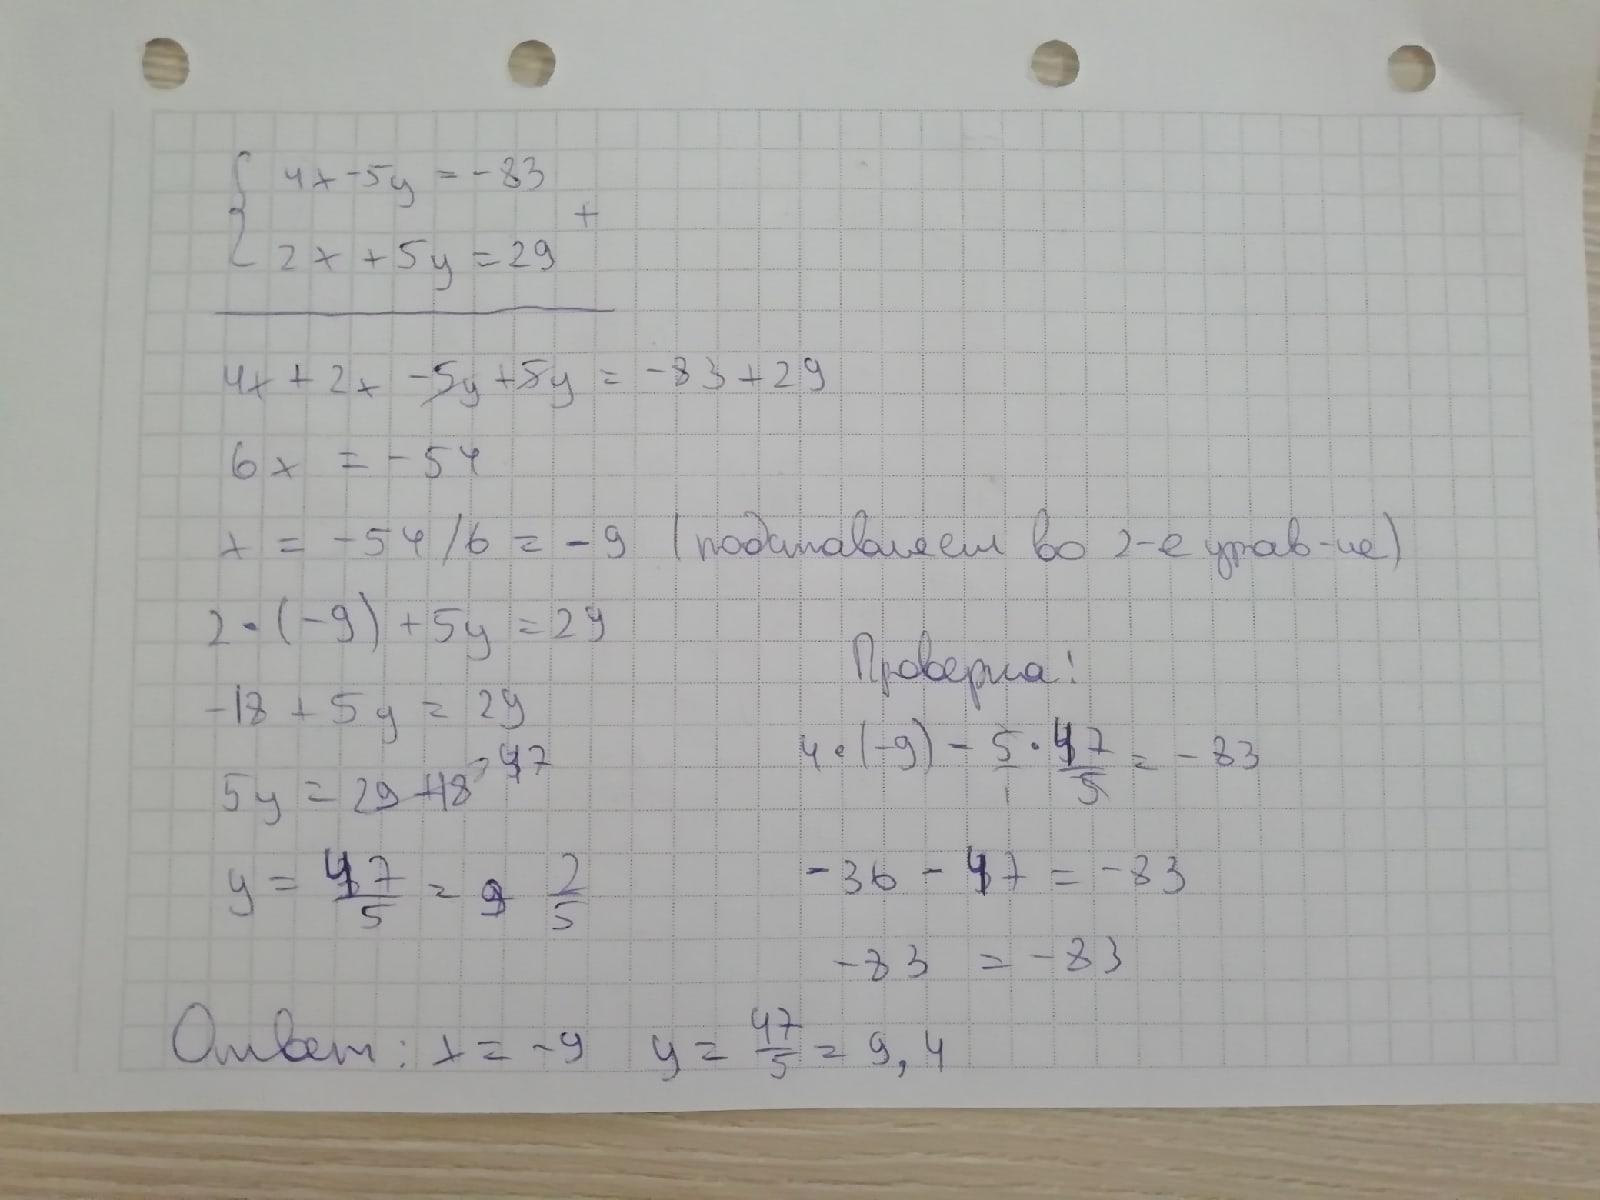 4x-5y = -83
2x + 5y = 29
+
4x + 2x - 5y + 5y = -83 + 29
6x = -54
x = -54/6 = -9 (подставляем во 2-е урав-не)
2·(-9) + 5y = 29
-18 + 5y = 29
5y = 29 +18 = 47
y = 47/5 = 9 2/5
Проверка:
4·(-9) - 5/1 · 47/5 = -83
-36 - 47 = -83
-83 = -83
Ответ: x = -9 y = 47/5 = 9,4